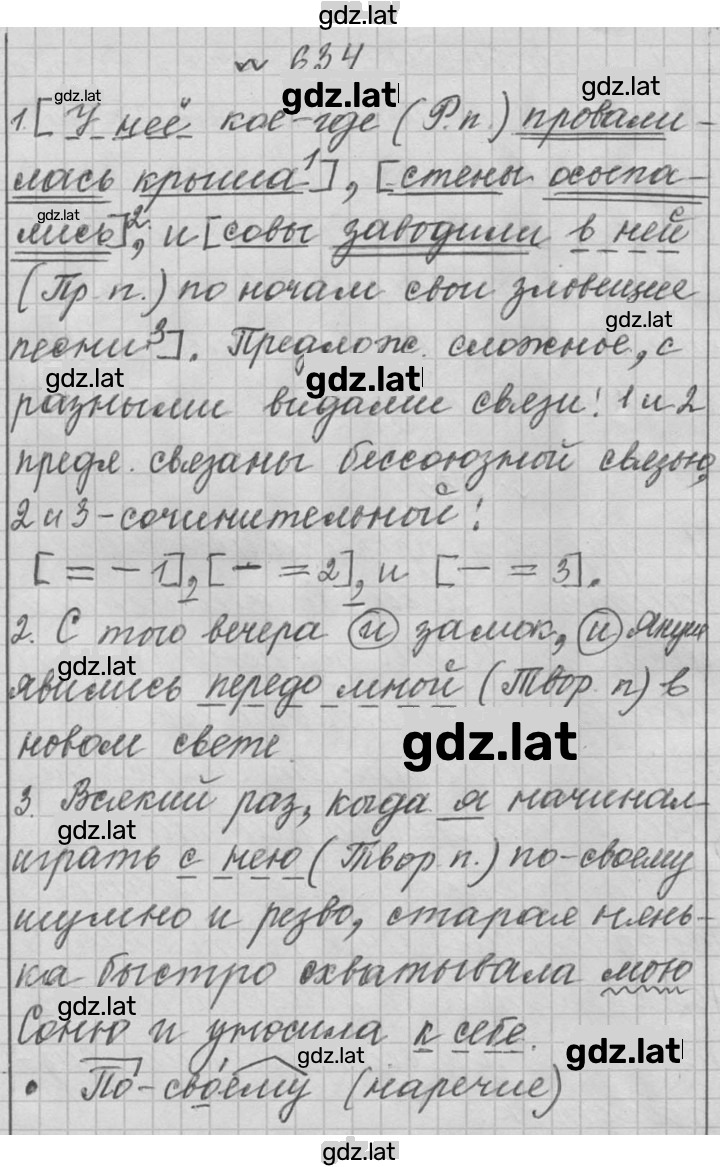 gdz.lat
№ 634
gdz.lat
gdz.lat
gdz.lat
1.[У неё кое-где (Р.п.) провали-
лась крыша¹], [стены осыпа-
gdz.lat
лись]², и [совы заводили в ней
(Пр. п.) по ночам свои зловещие
gdz.lat
песни³]. Предлож. сложное, с
gdz.lat
gdz.lat
разными видами связи: 1 и 2
предл. связаны бессоюзной связью,
2 и 3 - сочинительной:
[= - 1], [- = 2], и [- = 3].
2. С того вечера и замок, и Януш
gdz.lat
явились передо мной (Твор. п) в
новом свете
gdz.lat
3. Всякий раз, когда я начинал
gdz.lat
играть с нею (Твор. п.) по-своему
шумно и резво, старая нянь-
ка быстро схватывала мою
gdz.lat
Соню и уносила к себе.
gdz.lat
gdz.lat
• По-своему (наречие)
gdz.lat